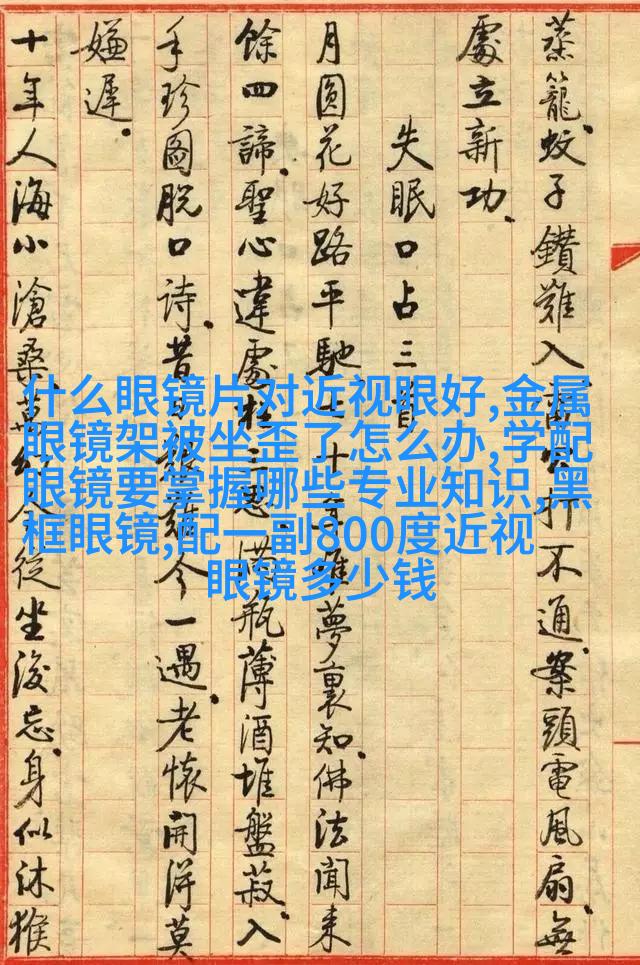 蒸籠。蚊子鑽難入,公打不通。案頭電風扇,無
處立新功。
失眠口占三首
月圓花好路平馳,七十年夢裏知。佛法聞來
餘四諦,聖心違處枉三思。滿瓶薄酒堆盤菽,入
手珍圖脱口詩。昔今一遇,老懷開得莫
嫌遲。
十年人海小滄桑,萬幻全從坐後忘。身似沐猴
什么眼镜片对近视眼好,金属
眼镜架被坐歪了怎么办,学配
眼镜要掌握哪些专业知识,黑
框眼镜,配一副800度近视
眼镜多少钱